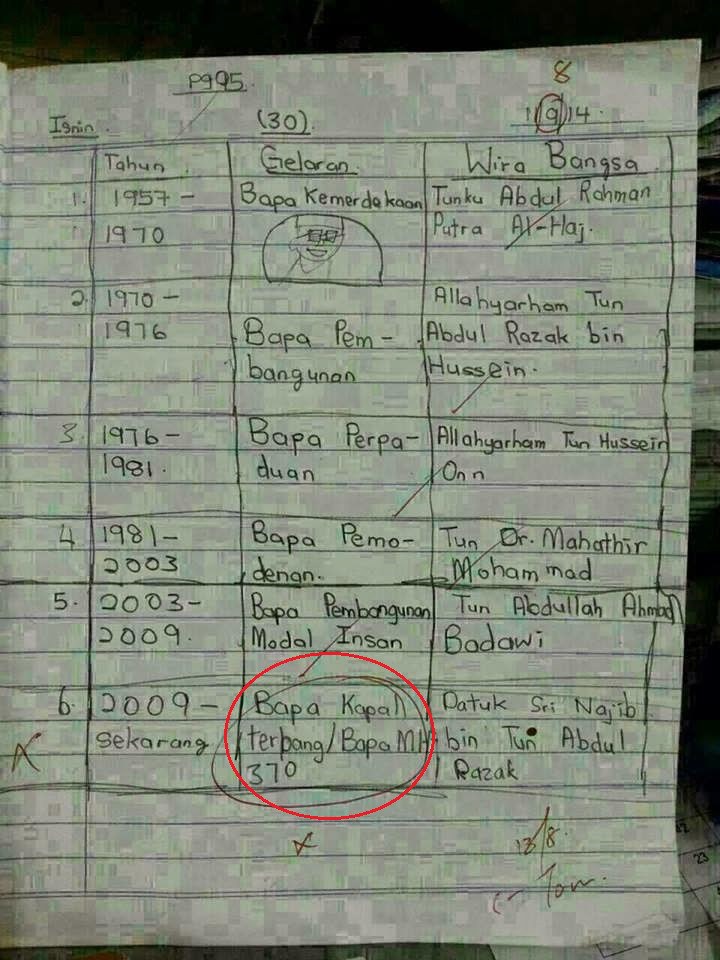 pg95
8
Isnin
(30)
1/9/14
Tahun
Gelaran
Wira Bangsa
1. 1957-
1970
Bapa Kemerdekaan
Tunku Abdul Rahman
Putra Al-Haj.
2. 1970-
1976
Bapa Pem-
bangunan
Allahyarham Tun
Abdul Razak bin
Hussein.
3. 1976-
1981.
Bapa Perpa-
duan
Allahyarham Tun Hussein
Onn
4 1981-
2003
Bapa Pemo-
denan.
Tun Dr. Mahathir
Mohammad
5. 2003-
2009.
Bapa Pembangunan
Modal Insan
Tun Abdullah Ahmad
Badawi
6. 2009-
sekarang
Bapa Kapal
terbang/Bapa MH
370
Datuk Sri Najib
bin Tun Abdul
Razak
13/8.
23